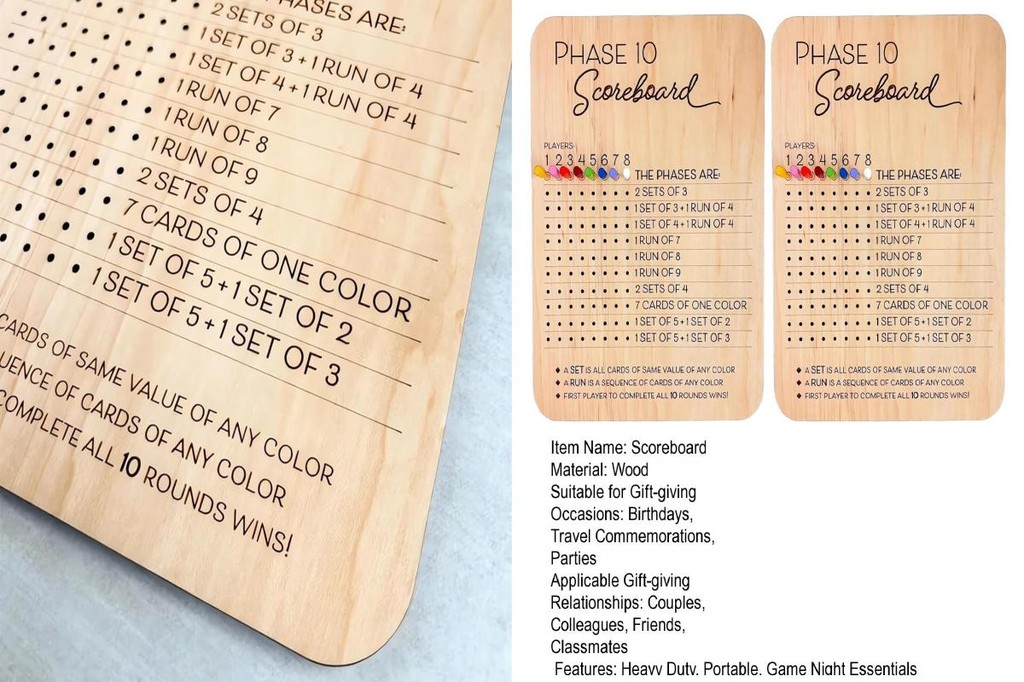 PHASES ARE:
2 SETS OF 3
1 SET OF 3+1 RUN OF 4
1 SET OF 4+1 RUN OF 4
1 RUN OF 7
1 RUN OF 8
1 RUN OF 9
2 SETS OF 4
7 CARDS OF ONE COLOR
1 SET OF 5+1 SET OF 2
1 SET OF 5+1 SET OF 3
CARDS OF SAME VALUE OF ANY COLOR
UENCE OF CARDS OF ANY COLOR
COMPLETE ALL 10 ROUNDS WINS!
PHASE 10
Scoreboard
PLAYERS:
1 2 3 4 5 6 7 8
THE PHASES ARE:
2 SETS OF 3
1 SET OF 3+1 RUN OF 4
1 SET OF 4+1 RUN OF 4
1 RUN OF 7
1 RUN OF 8
1 RUN OF 9
2 SETS OF 4
7 CARDS OF ONE COLOR
1 SET OF 5+1 SET OF 2
1 SET OF 5+1 SET OF 3
A SET IS ALL CARDS OF SAME VALUE OF ANY COLOR
A RUN IS A SEQUENCE OF CARDS OF ANY COLOR
FIRST PLAYER TO COMPLETE ALL 10 ROUNDS WINS!
PHASE 10
Scoreboard
PLAYERS:
1 2 3 4 5 6 7 8
THE PHASES ARE:
2 SETS OF 3
1 SET OF 3+1 RUN OF 4
1 SET OF 4+1 RUN OF 4
1 RUN OF 7
1 RUN OF 8
1 RUN OF 9
2 SETS OF 4
7 CARDS OF ONE COLOR
1 SET OF 5+1 SET OF 2
1 SET OF 5+1 SET OF 3
A SET IS ALL CARDS OF SAME VALUE OF ANY COLOR
A RUN IS A SEQUENCE OF CARDS OF ANY COLOR
FIRST PLAYER TO COMPLETE ALL 10 ROUNDS WINS!
Item Name: Scoreboard
Material: Wood
Suitable for Gift-giving
Occasions: Birthdays,
Travel Commemorations,
Parties
Applicable Gift-giving
Relationships: Couples,
Colleagues, Friends,
Classmates
Features: Heavy Duty, Portable, Game Night Essentials